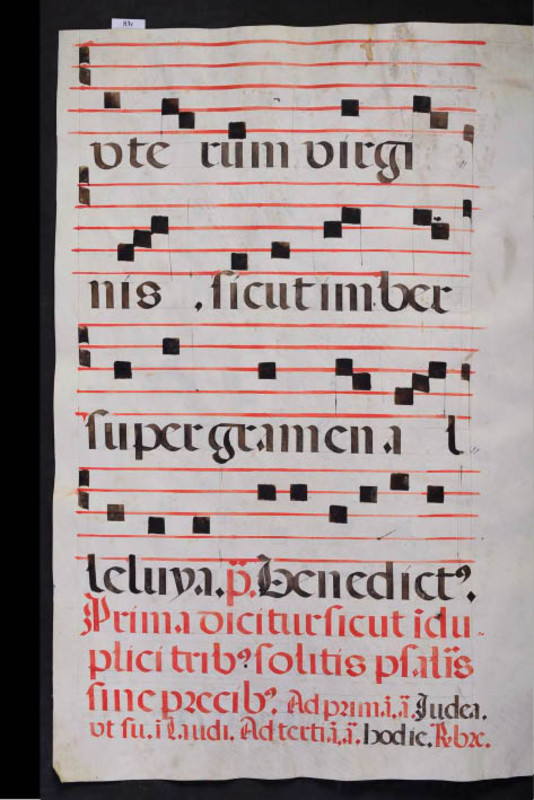 vte rum virgi
nis , sicut imber
super gramena l
leluya. p̃. Benedict⁹.
Prima dicitur sicut i du
plici trib⁹ solitis psal̃is
sine precib⁹. Ad prim.ã.ã. Judea.
vt su. i Laudi. Ad terti.ã.ã. hodie. R̃brc.